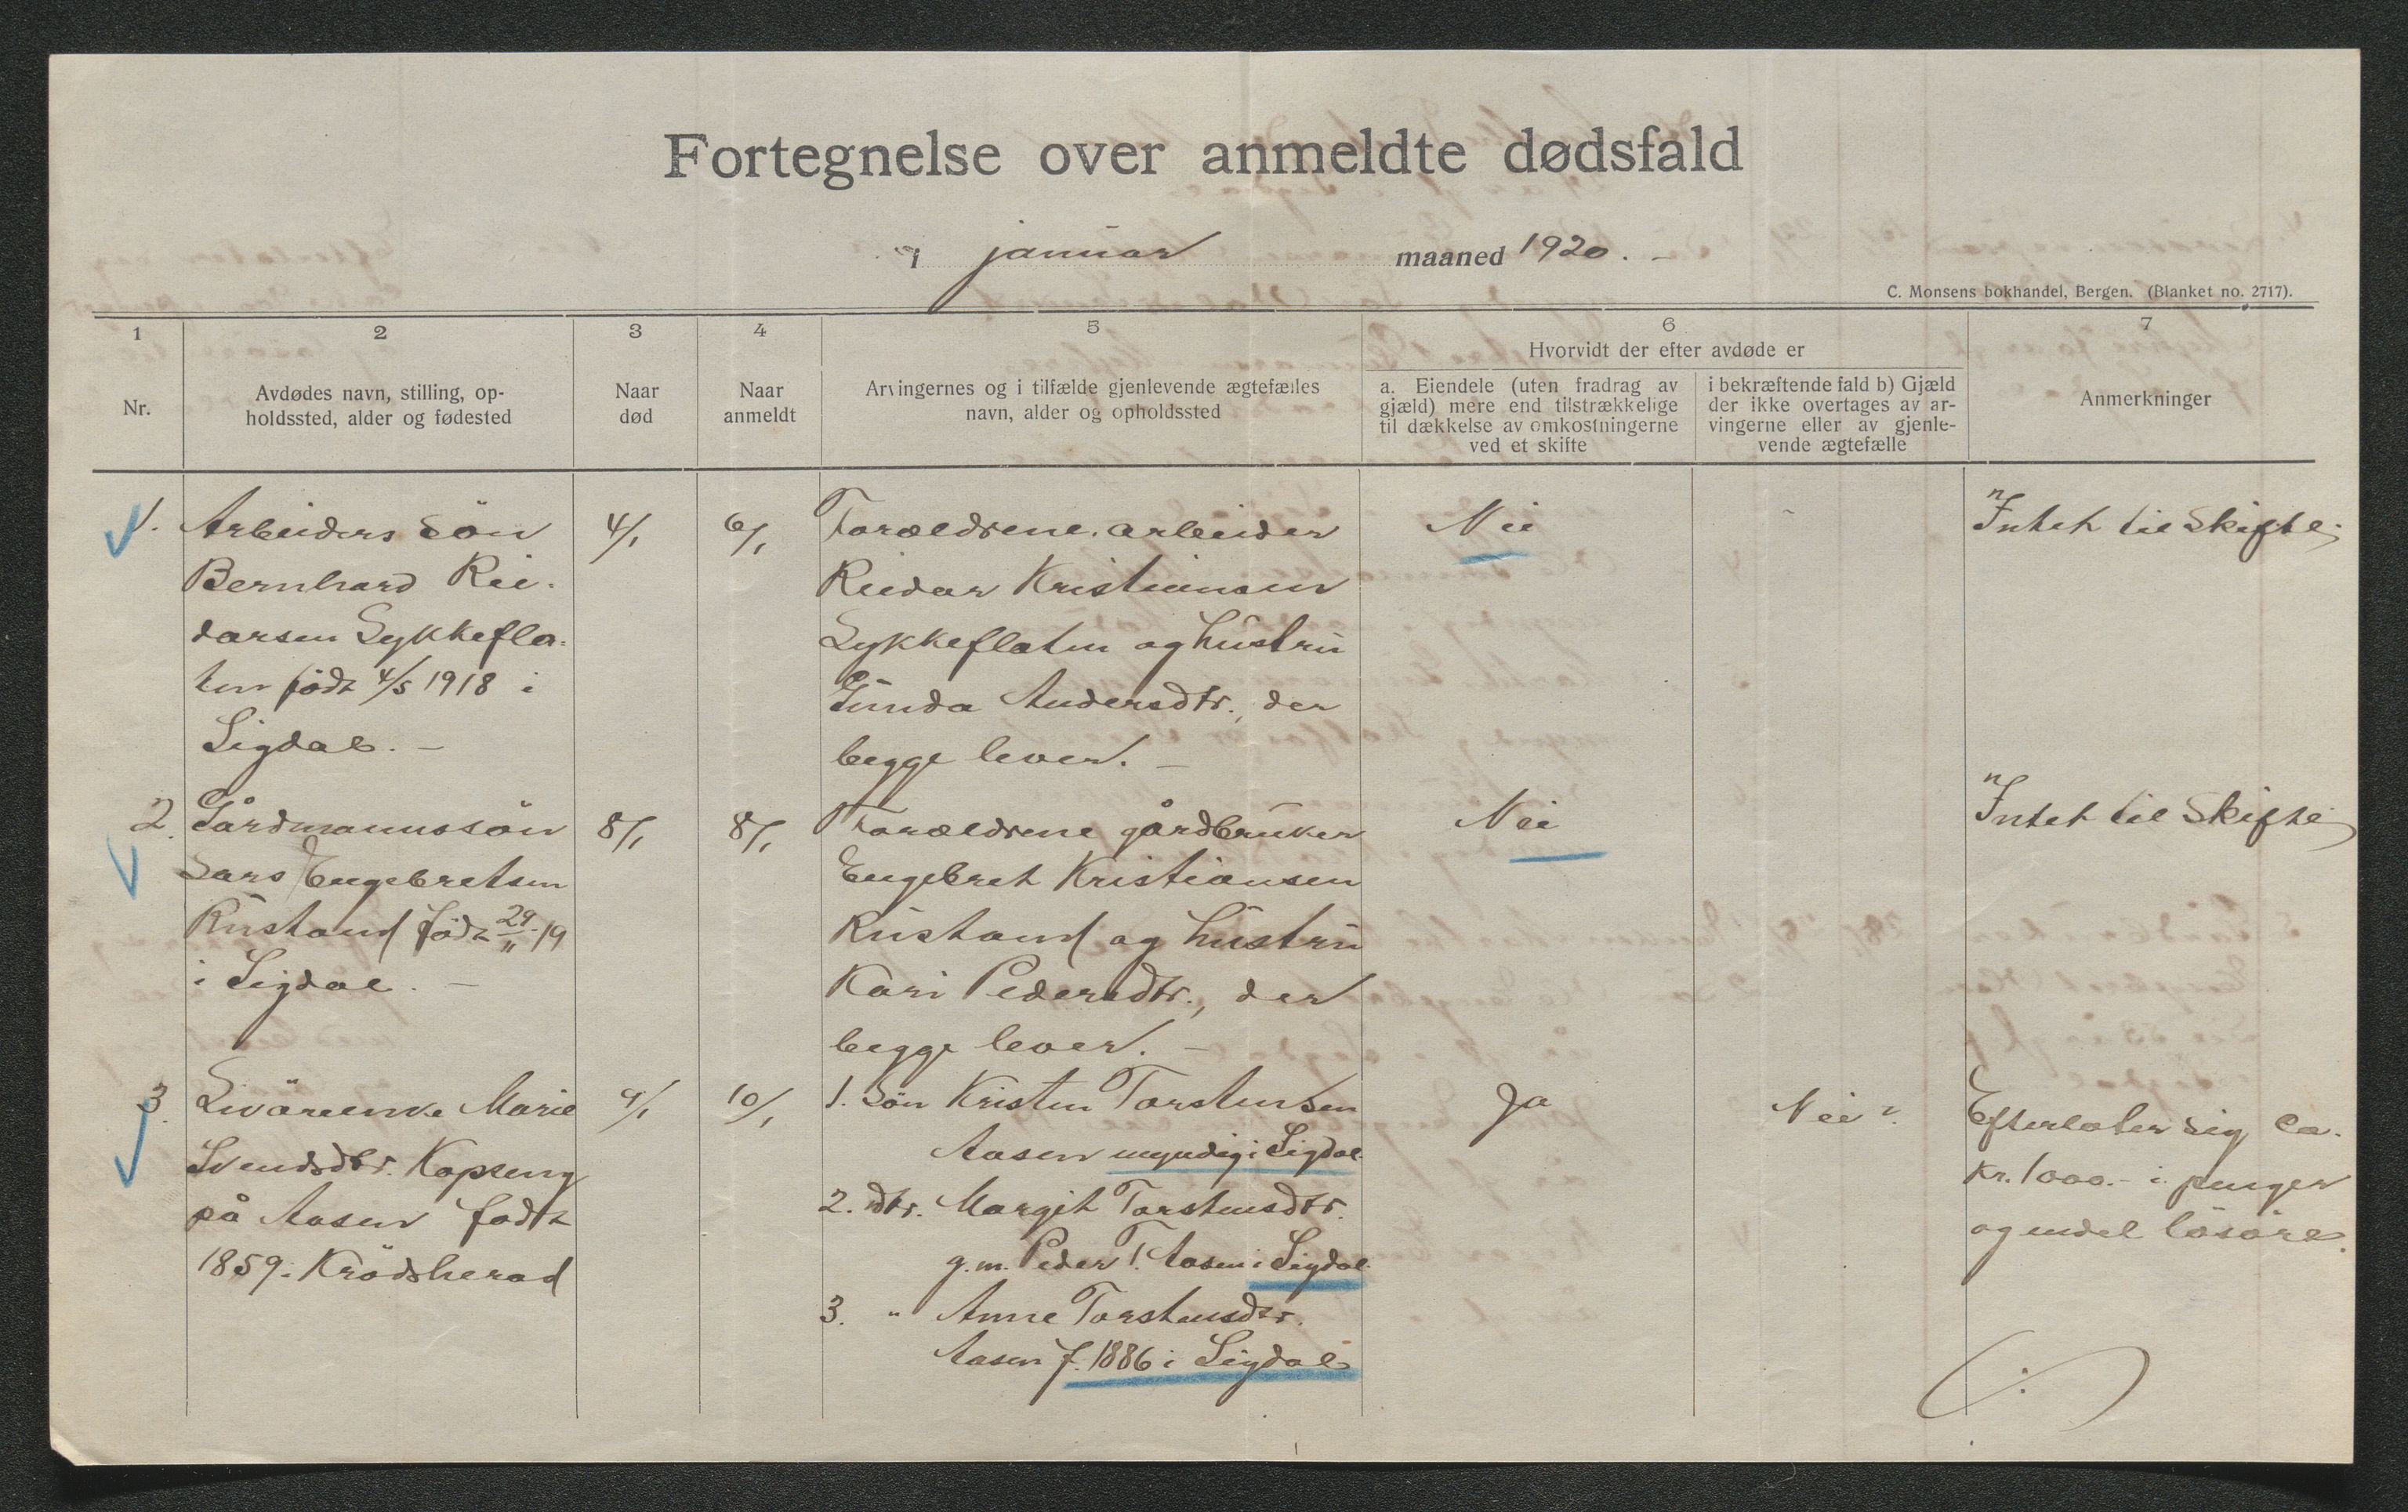 Fortegnelse over anmeldte dødsfald
i januar maaned 1920. -
C. Monsens bokhandel, Bergen. (Blanket no. 2717).
1
Nr.
2
Avdødes navn, stilling, op-
holdssted, alder og fødested
3
Naar
død
4
Naar
anmeldt
5
Arvingernes og i tilfælde gjenlevende ægtefælles
navn, alder og opholdssted
6
Hvorvidt der efter avdøde er
a. Eiendele (uten fradrag av
gjæld) mere end tilstrækkelige
til dækkelse av omkostningerne
ved et skifte
i bekræftende fald b) Gjæld
der ikke overtages av ar-
vingerne eller av gjenle-
vende ægtefælle
7
Anmerkninger
1.
Arbeiders sön
Bernhard Rei-
darsen Lykkefla-
ten födt 4/5 1918 i
Sigdal. -
4/1
6/1
Forældrene. arbeider
Reidar Kristiansen
Lykkeflaten og hustru
Gunda Andersdtr., der
begge lever. -
Nei
Intet til Skifte
2.
Gårdmannssön
Lars Engebretsen
Rustand födt 29/11-19
i Sigdal. -
8/1
8/1
Forældrene gårdbruker
Engebret Kristiansen
Rustand og hustru
Kari Pedersdtr., der
begge lever. -
Nei
Intet til Skifte
3.
Livöreenke Marie
Svendsdtr. Kopseng
på Aasen födt
1859. Krödsherad
9/1
10/1
1. Sön Kristen Torstensen
Aasen myndig i Sigdal
2. dtr. Margit Torstensdtr.
g.m. Peder T. Aasen i Sigdal
3. " Anne Torstensdtr.
Aasen f. 1886 i Sigdal
Ja
Nei
Efterlater sig ca.
Kr. 1000.- i penger
og endel lösöre.